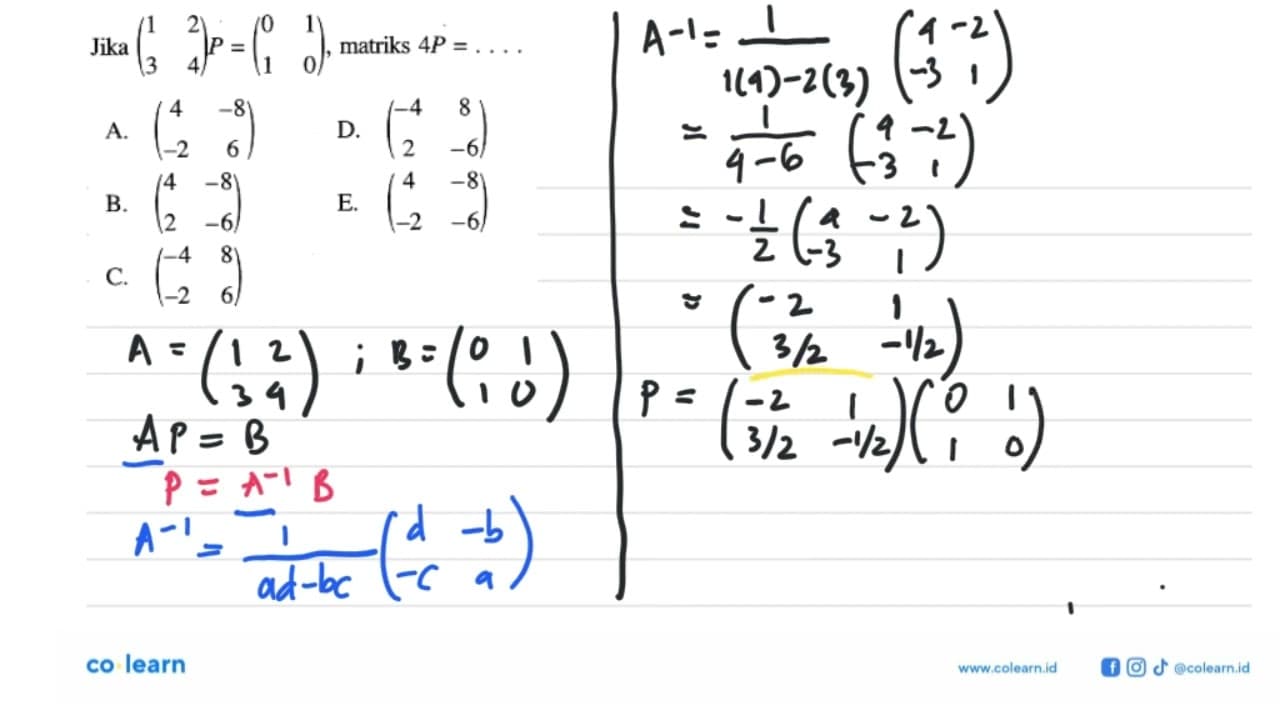 Jika (1 2 3 4)P = (0 1 1 0), matriks 4P = . . . .
A. (4 −8 −2 6)
B. (4 −8 2 −6)
C. (−4 8 −2 6)
D. (−4 8 2 −6)
E. (4 −8 −2 −6)
A = (1 2 3 4) ; B = (0 1 1 0)
AP = B
P = A-1 B
A-1 = 1/ad-bc (d -b -c a)
A-1 = 1/1(4)-2(3) (4 -2 -3 1)
= 1/4-6 (4 -2 -3 1)
= -1/2 (4 -2 -3 1)
= (-2 1 3/2 -1/2)
P = (-2 1 3/2 -1/2)(0 1 1 0)
co learn
www.colearn.id
@colearn.id